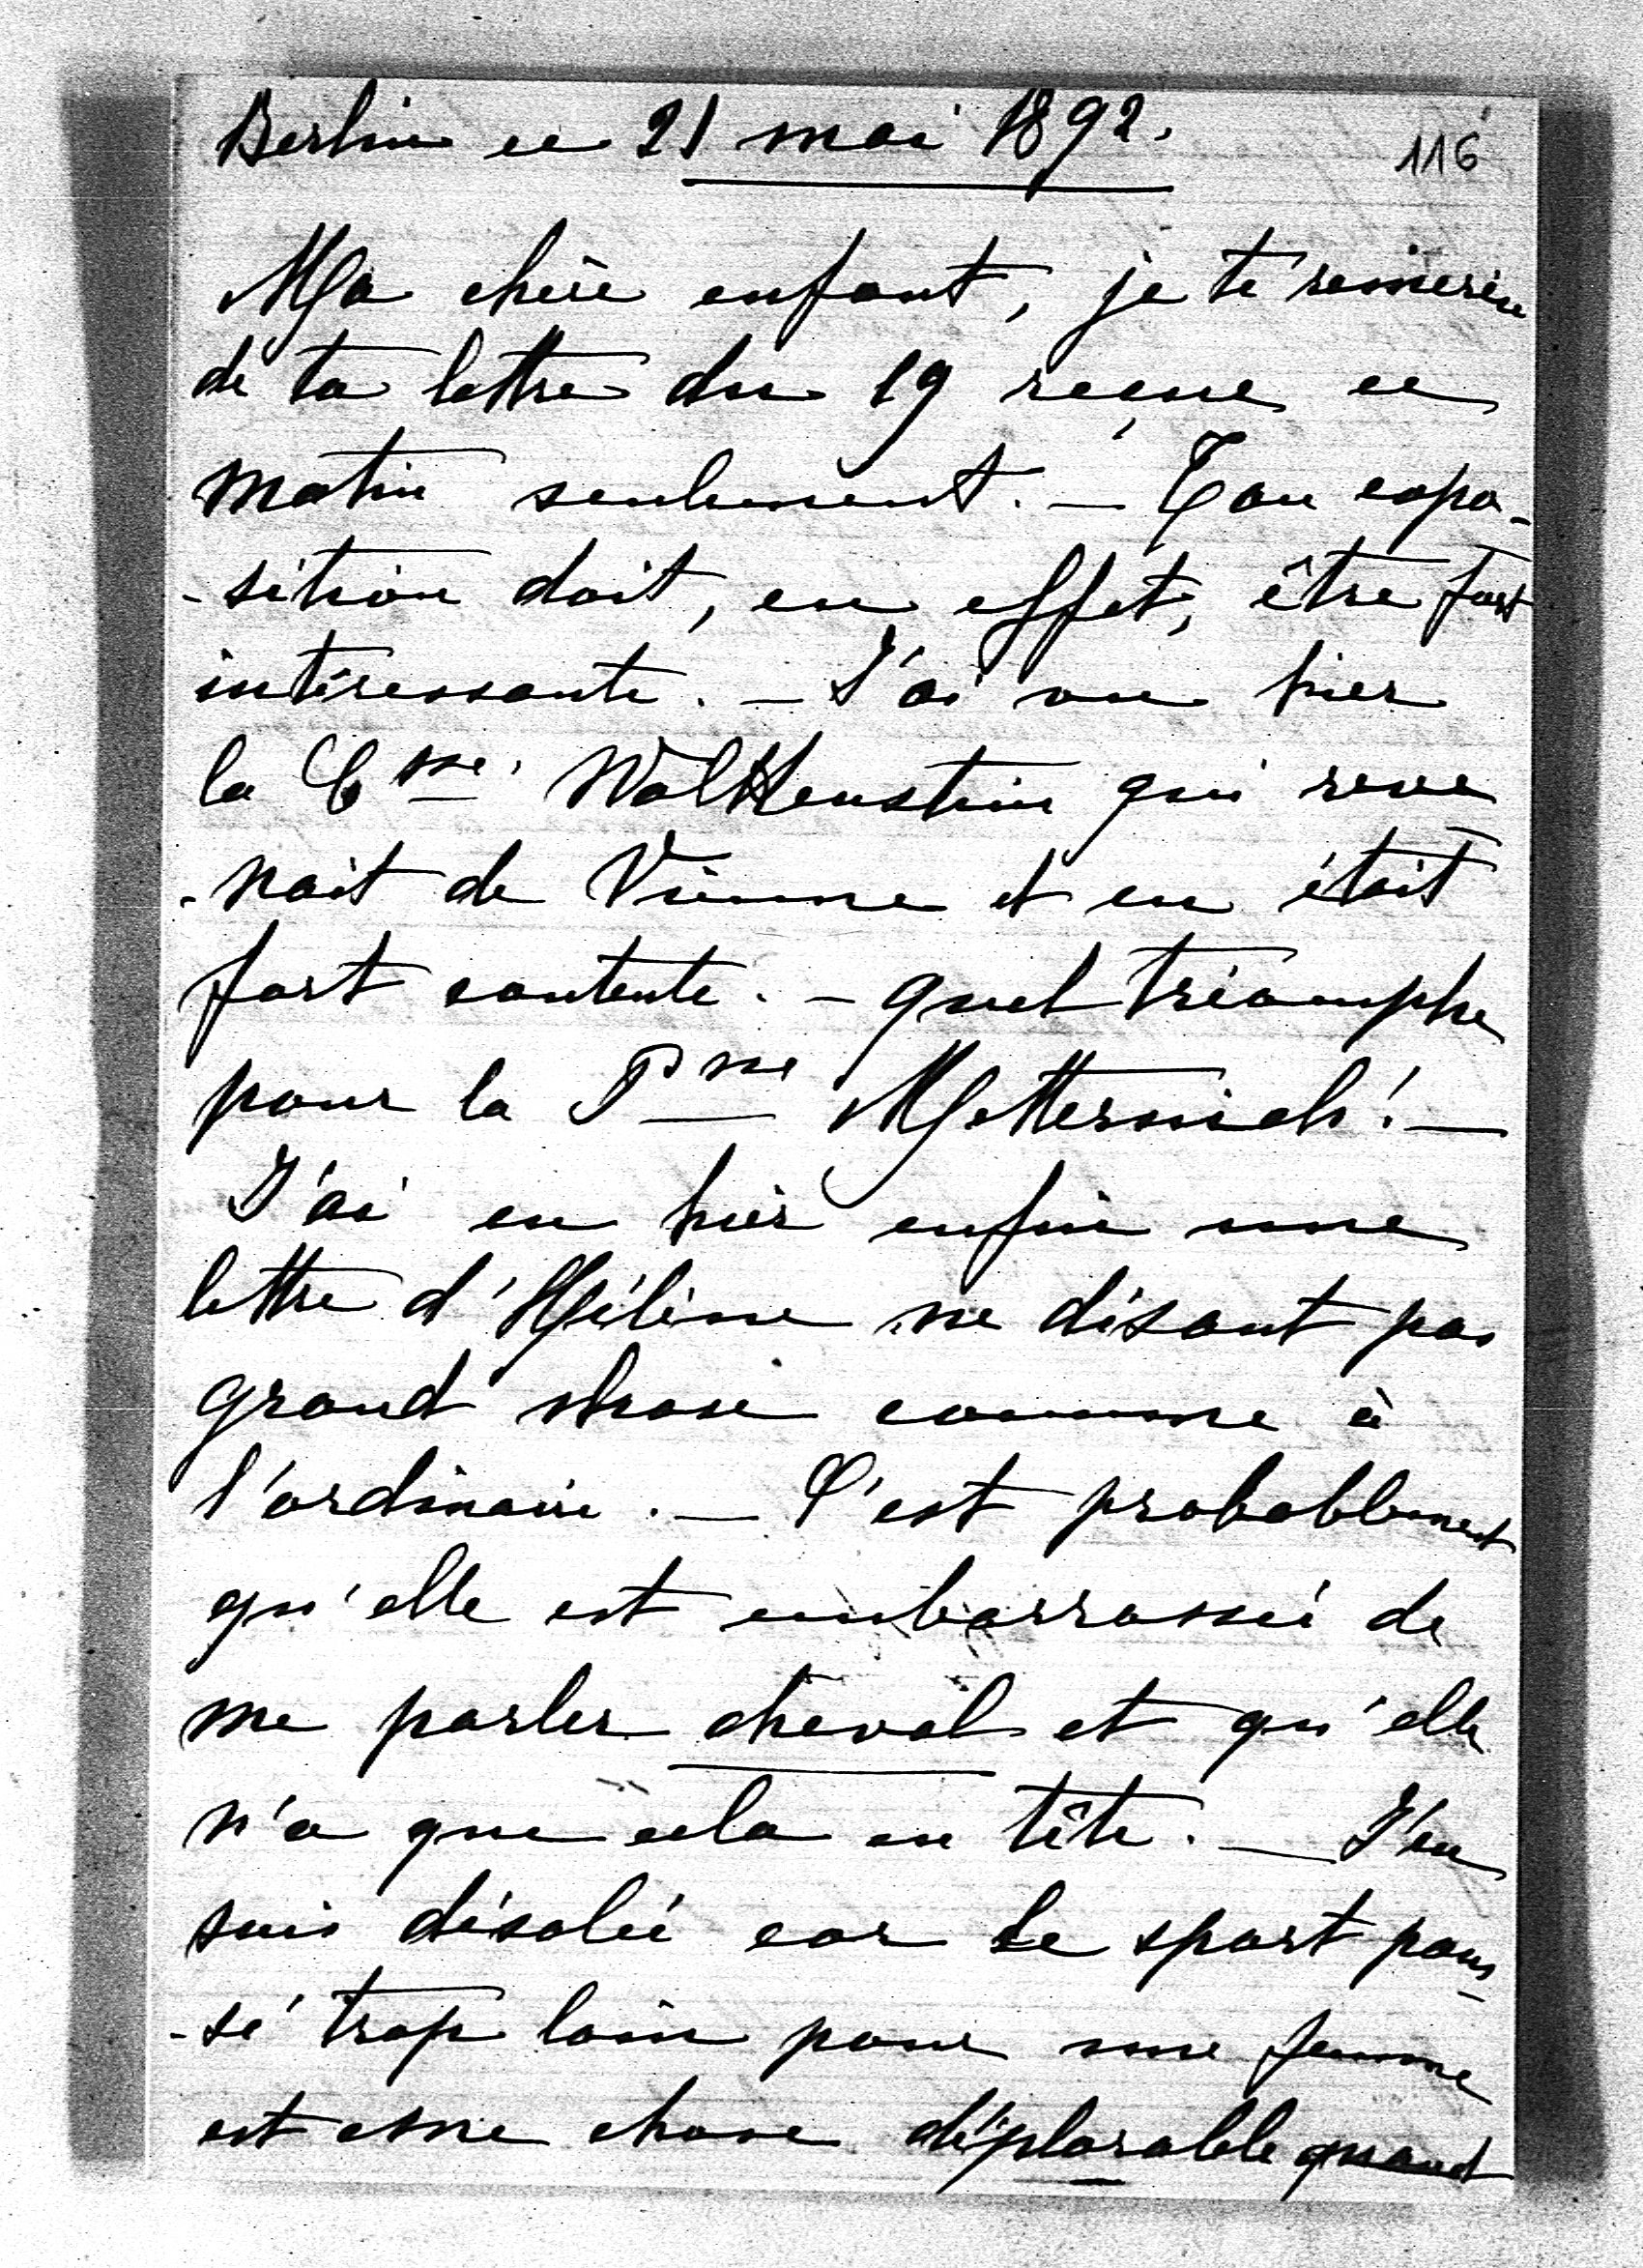 Berlin ce 21 mai 1892.
116
Ma chère enfant, je te remercie
de ta lettre du 19 reçue ce
matin seulement. – Ton expo-
-sition doit, en effet, être fort
intéressante. – J'ai vu hier
la Csse. Walkenstein qui reve
-nait de Vienne et en était
fort contente. – quel triomphe
pour la Psse Metternich! –
J'ai eu hier enfin une
lettre d'Hélène ne disant pas
grand chose comme à
l'ordinaire. – C'est probablement
qu'elle est embarrassée de
me parler cheval et qu'elle
n'a que cela en tête. – J'en
suis désolée car le sport pous-
-sé trop loin pour une femme
est une chose déplorable quand